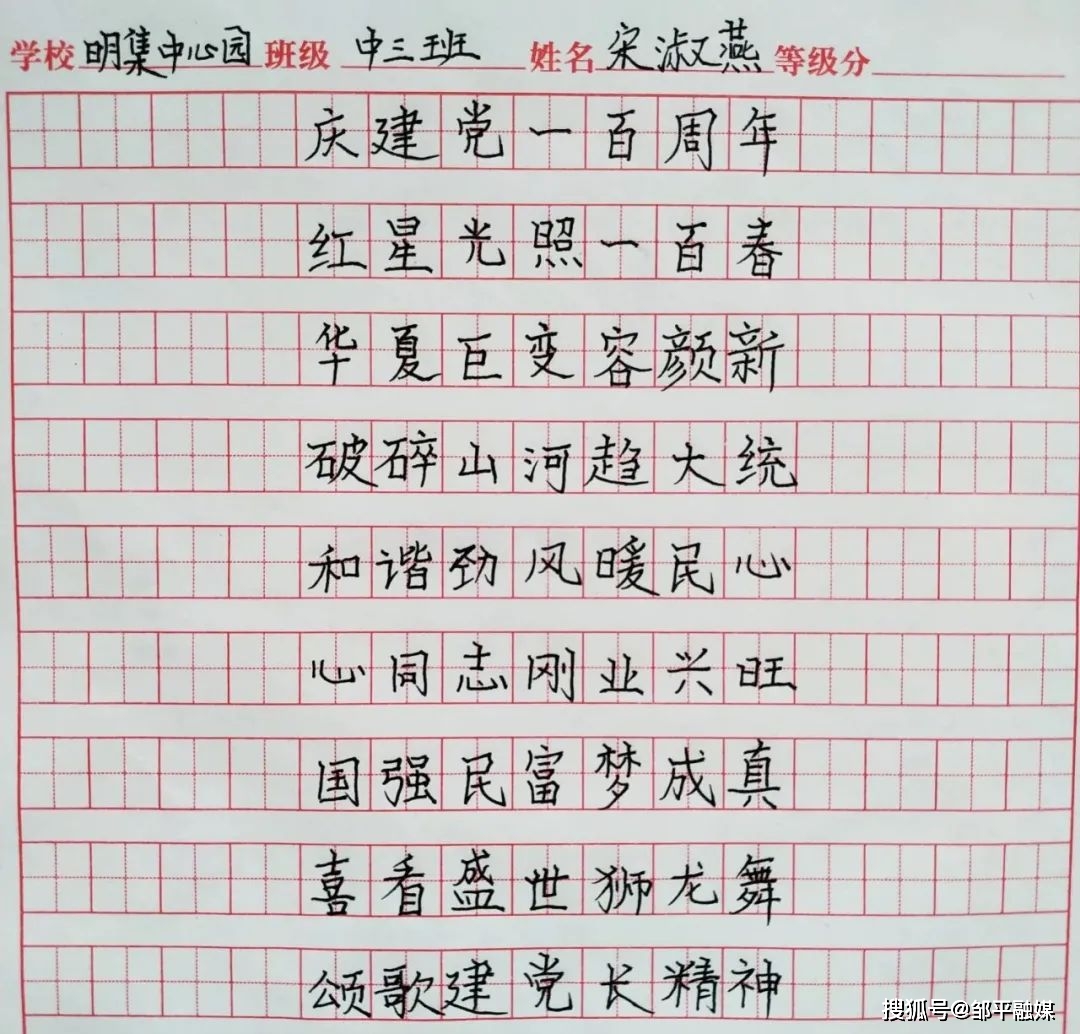 学校 明集中心园 班级 中三班 姓名 宋淑燕 等级分
庆建党一百周年
红星光照一百春
华夏巨变容颜新
破碎山河趋大统
和谐劲风暖民心
心同志刚业兴旺
国强民富梦成真
喜看盛世狮龙舞
颂歌建党长精神
搜狐号@邹平融媒